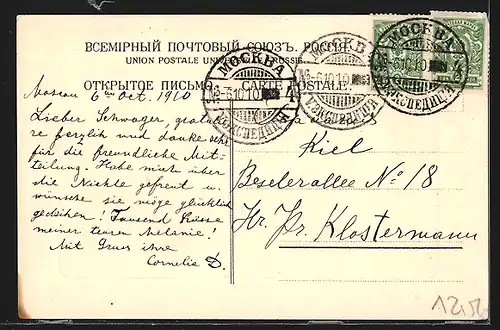 ВСЕМІРНЫЙ ПОЧТОВЫЙ СОЮЗЪ. РОССІЯ.
UNION POSTALE UNIVERSELLE. RUSSIE.
ОТКРЫТОЕ ПИСЬМО. CARTE POSTALE.
МОСКВА
6 10 10
ЭКСПЕДИЦІЯ
МОСКВА
6 10 10
ЭКСПЕДИЦІЯ
МОСКВА
6 10 10
ЭКСПЕДИЦІЯ
Moscau 6 Oct. 1910
Lieber Schwager
herzlich und danke sehr
für die freundliche Mit-
teilung. Habe mich über
die Nichte gefreut u.
wünsche sie möge glücklich
gedeihen! Tausend Küsse
meiner teuren Melanie!
Mit Gruss ihre
Cornelia D.
Kiel
Beselerallee No 18
Hr. Pr. Klostermann